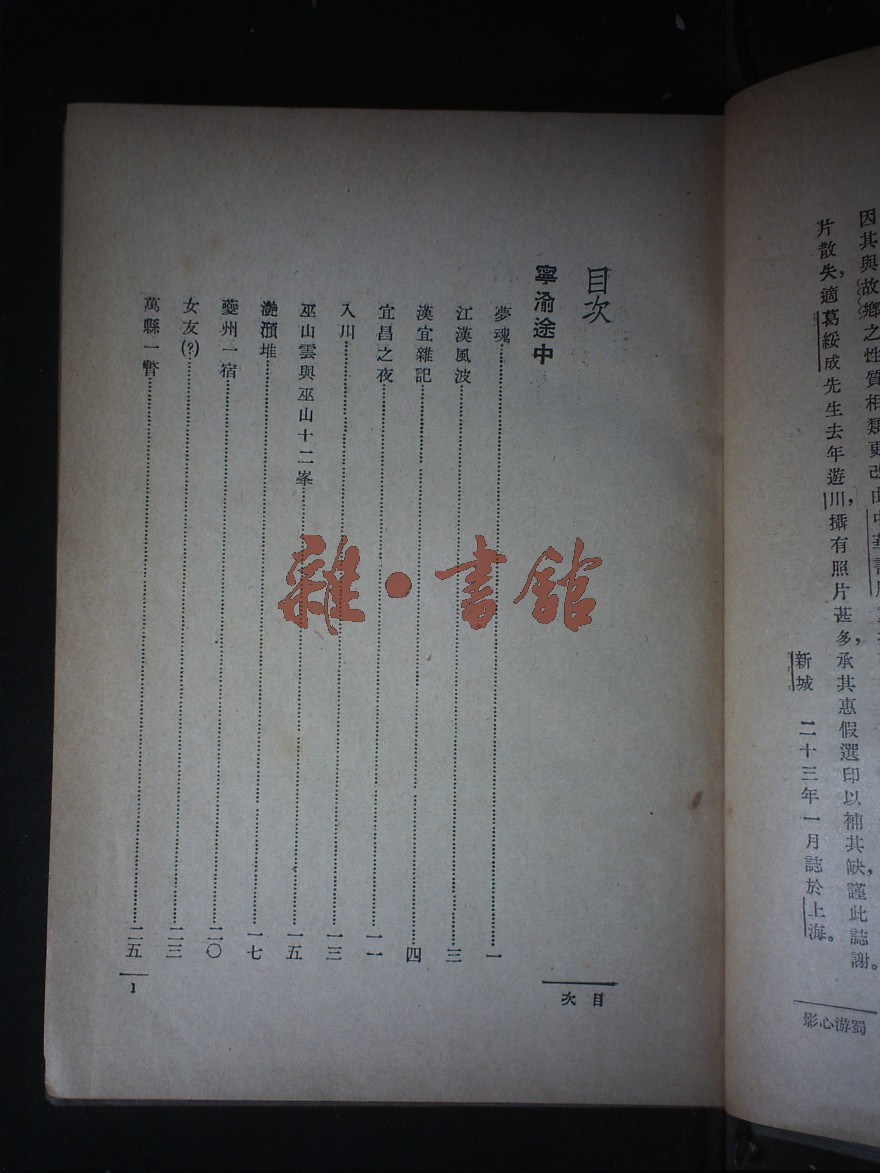 因其與故鄉之性質相類更改由中華書局
片散失,適葛綏成先生去年遊川,攝有照片甚多,承其惠假選印以補其缺,謹此誌謝。
新城 二十三年一月誌於上海。
蜀游心影
目次
寧渝途中
夢魂 一
江漢風波 三
漢宜雜記 四
宜昌之夜 一一
入川 一三
巫山雲與巫山十二峯 一五
灧澦堆 一七
夔州一宿 二〇
女友(?) 二三
萬縣一瞥 二五
目次
1
雜·書館